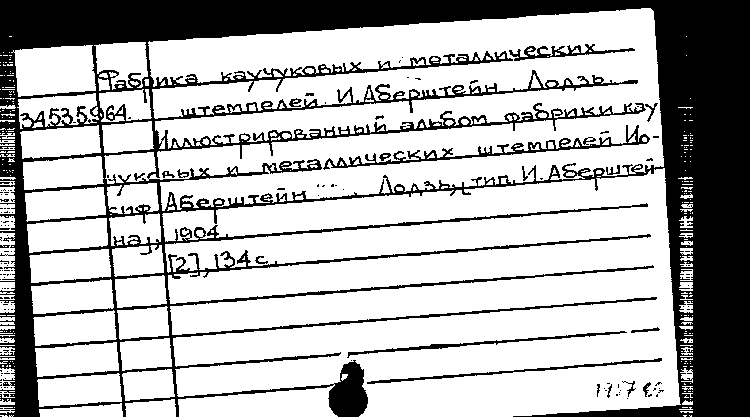 Фабрика каучуковых и металлических
34.535.964. штемпелей И.Аберштейн. Лодзь.
Иллюстрированный альбом фабрики кау
чуковых и металлических штемпелей Ио-
сиф Аберштейн .... Лодзь, тип. И. Аберштей
на], 1904.
[2], 134 с.